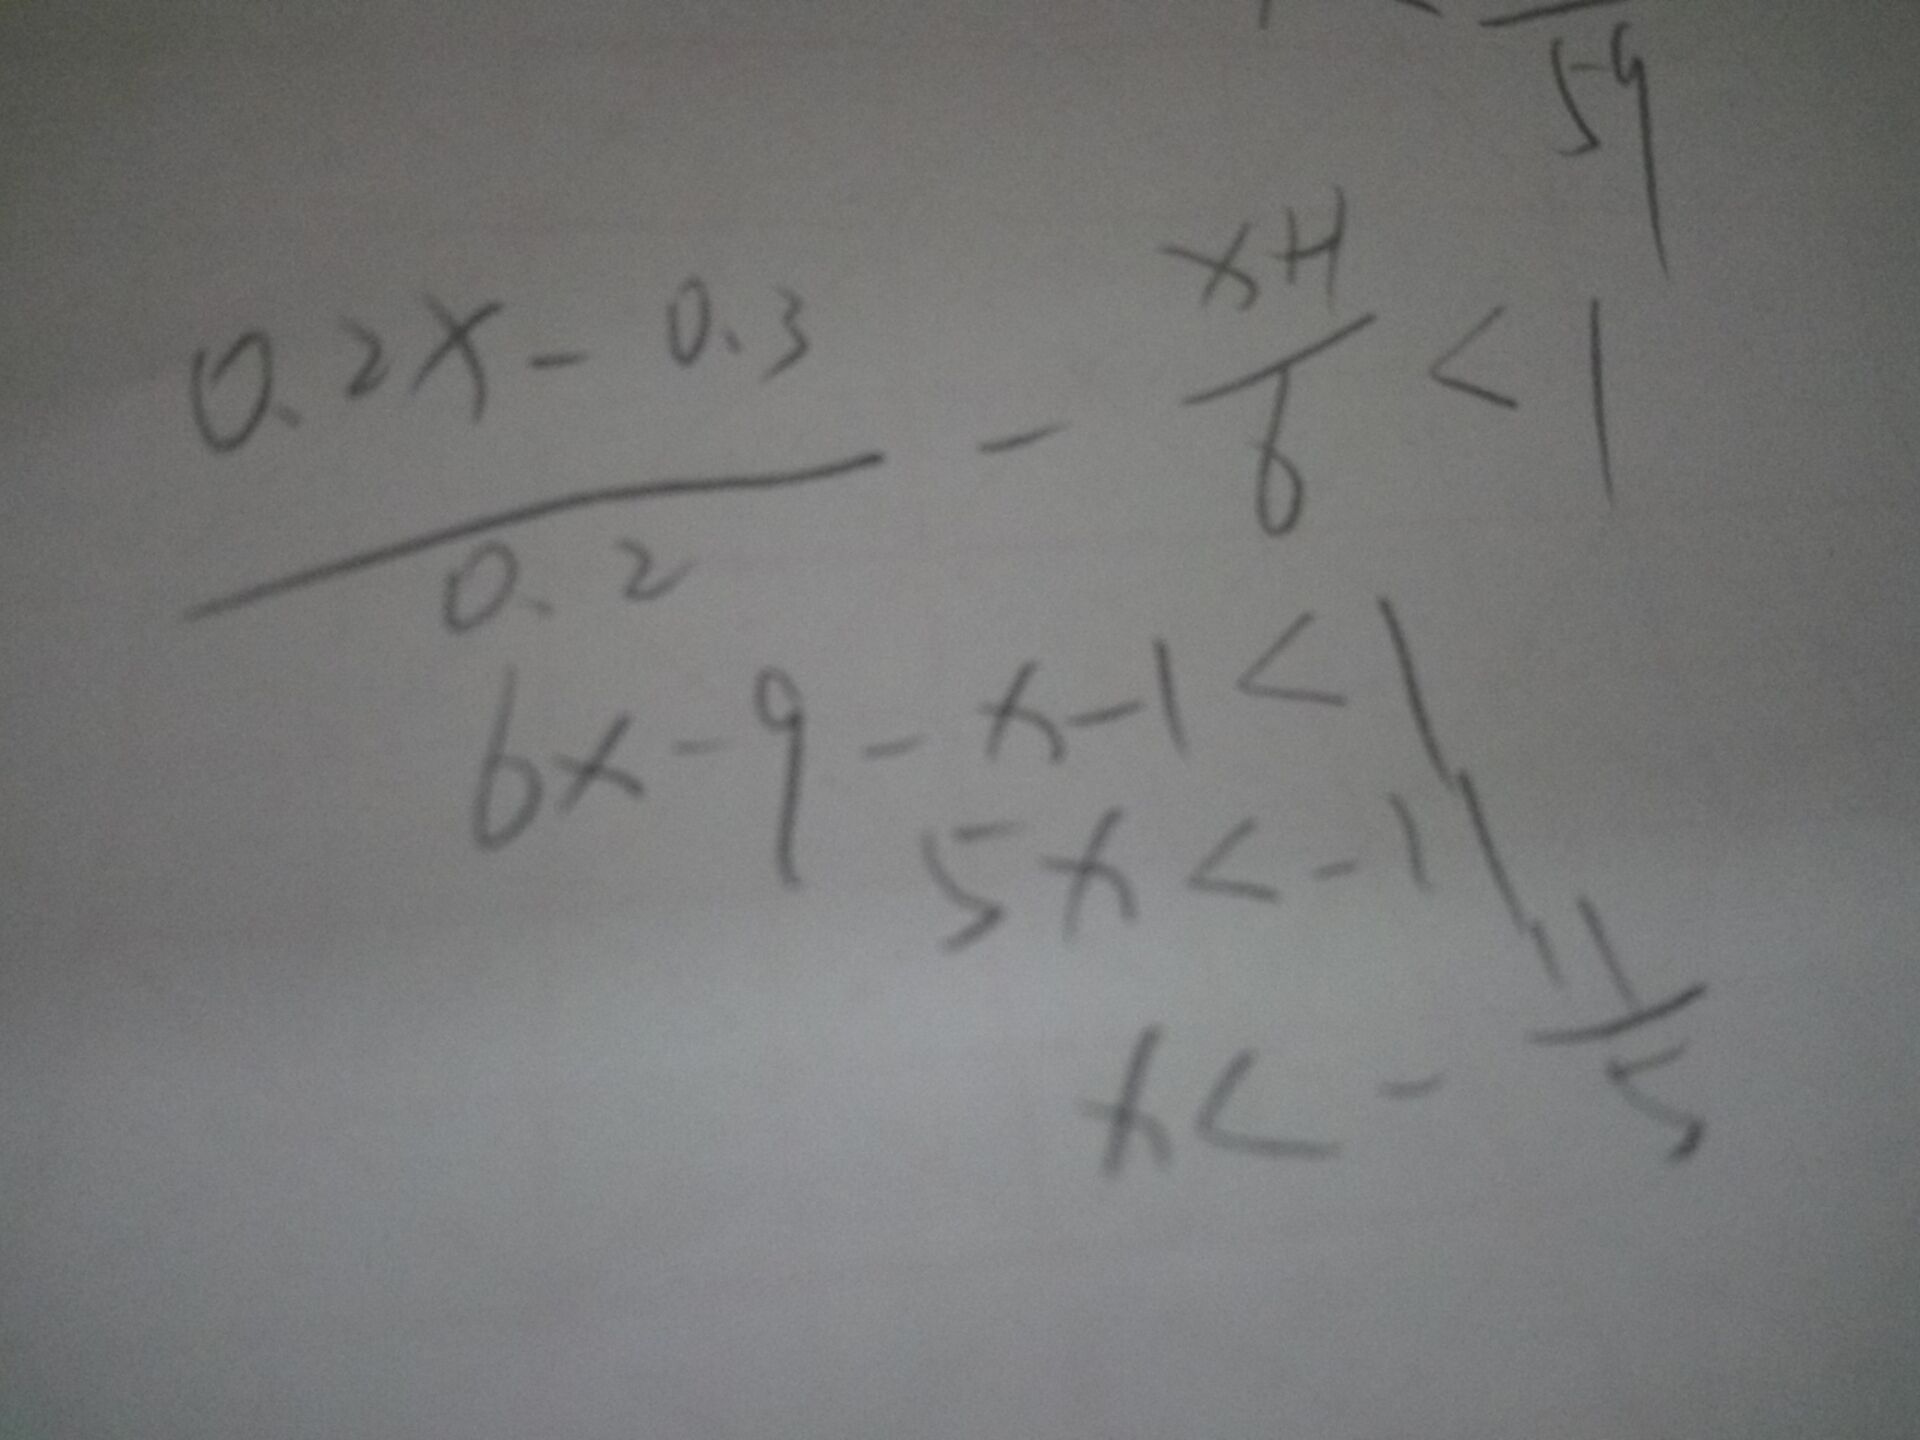 59
0.2x - 0.3 / 0.2 - x+1 / 6 < 1
6x - 9 - x - 1 < 1
5x < - 11
x < - 11 / 5